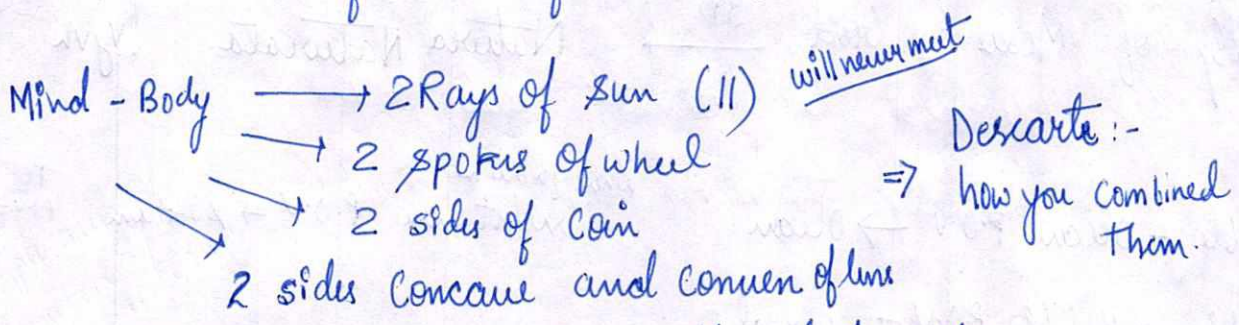 Mind - Body → 2 Rays of sun (11) will never meet
→ 2 spokes of wheel
→ 2 sides of coin
→ 2 sides concave and convex of lens
Descarte :-
⇒ how you combined
them.